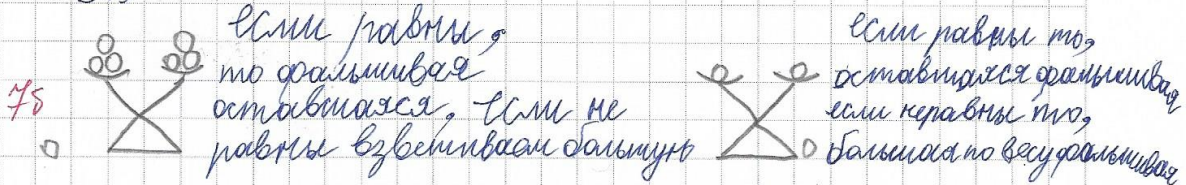 если равны,
то фальшивая
7б
оставшаяся, если не
равны взвешиваем большую
если равны то,
оставшаяся фальшивая
если неравны то,
большая по весу фальшивая